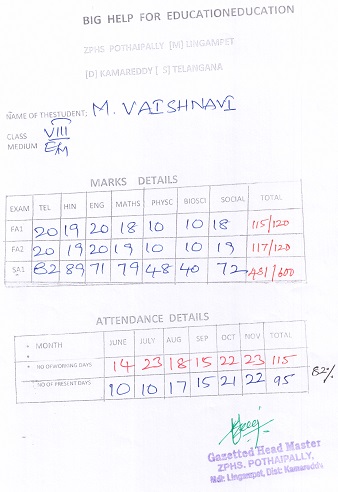 BIG HELP FOR EDUCATIONEDUCATION
ZPHS POTHAIPALLY [M] LINGAMPET
[D] KAMAREDDY [ S] TELANGANA
NAME OF THESTUDENT; M. VAISHNAVI
CLASS VIII
MEDIUM EM
MARKS DETAILS
EXAM TEL HIN ENG MATHS PHYSC BIOSCI SOCIAL TOTAL
FA1 20 19 20 18 10 10 18 115/120
FA2 20 19 20 19 10 10 19 117/120
SA1 82 89 71 79 48 40 72 481/600
ATTENDANCE DETAILS
MONTH JUNE JULY AUG SEP OCT NOV TOTAL
NO OF WORKING DAYS 14 23 18 15 22 23 115
NO OF PRESENT DAYS 10 10 17 15 21 22 95 82%
Gazetted Head Master
ZPHS. POTHAIPALLY,
Mdl: Lingampet, Dist: Kamareddy